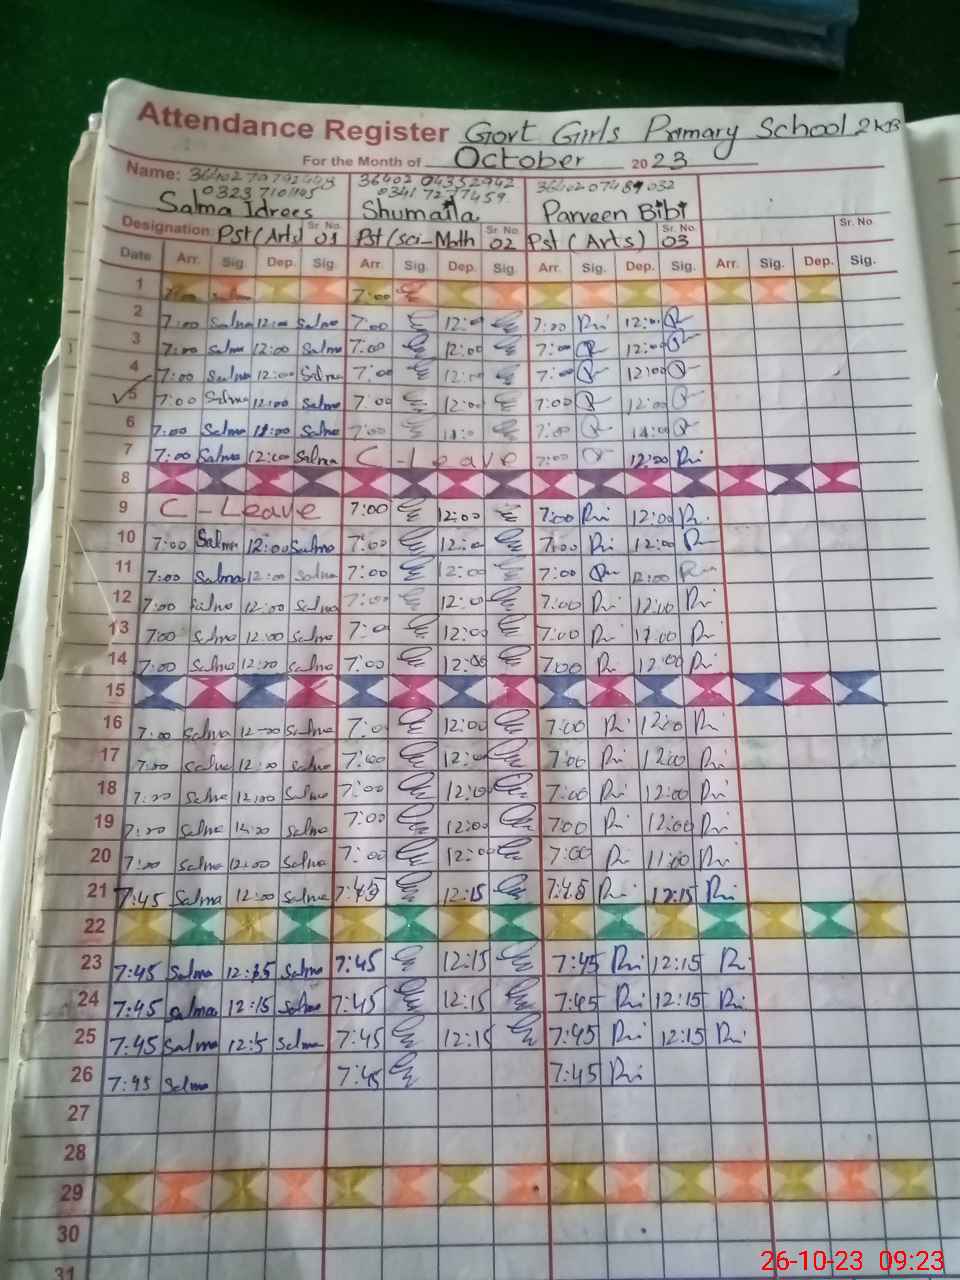 Attendance Register Govt Girls Primary School 2KB
For the Month of October 2023
Name: 0323 7101145 0341 7277459
Salma Idrees Shumaila Parveen Bibi
Designation: Pst (Arts) Sr. No. 01 Pst (sci-Math Sr. No. 02 Pst (Arts) Sr. No. 03 Sr. No.
Date Arr. Sig. Dep. Sig. Arr. Sig. Dep. Sig. Arr. Sig. Dep. Sig. Arr. Sig. Dep. Sig.
1 7:00 Salma 7:00
2 7:00 Salma 12:00 Salma 7:00 12:00 7:00 12:00
3 7:00 Salma 12:00 Salma 7:00 12:00 7:00 12:00
4 7:00 Salma 12:00 Salma 7:00 12:00 7:00 12:00
5 7:00 Salma 12:00 Salma 7:00 12:00 7:00 12:00
6 7:00 Salma Salma 7:00 7:00
7 7:00 Salma 12:00 Salma C-Leave 7:00 12:00
8
9 C-Leave 7:00 12:00 7:00 12:00
10 7:00 Salma 12:00 Salma 7:00 12:00 7:00 12:00
11 7:00 Salma 12:00 Salma 7:00 12:00 7:00 12:00
12 7:00 Salma 12:00 Salma 7:00 12:00 7:00 12:00
13 7:00 Salma 12:00 Salma 7:00 12:00 7:00
14 7:00 Salma 12:00 Salma 7:00 12:00 7:00 12:00
15
16 7:00 Salma 12:00 Salma 7:00 12:00 7:00 12:00
17 7:00 Salma 12:00 Salma 7:00 12:00 7:00 12:00
18 7:00 Salma 12:00 Salma 7:00 12:00 7:00 12:00
19 7:00 Salma 12:00 Salma 7:00 12:00 7:00 12:00
20 7:00 Salma 12:00 Salma 7:00 12:00 7:00
21 7:45 Salma 12:00 Salma 7:45 12:15 7:45 12:15
22
23 7:45 Salma 12:15 Salma 7:45 12:15 7:45 12:15
24 7:45 Salma 12:15 Salma 7:45 12:15 7:45 12:15
25 7:45 Salma 12:5 Salma 7:45 12:15 7:45 12:15
26 7:45 Salma 7:45 7:45
27
28
29
30
31
26-10-23 09:23